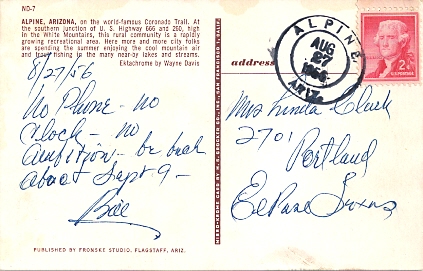 ND-7
ALPINE, ARIZONA, on the world-famous Coronado Trail. At
the southern junction of U. S. Highway 666 and 260, high
in the White Mountains, this rural community is a rapidly
growing recreational area. Here more and more city folks
are spending the summer enjoying the cool mountain air
and trout fishing in the many near-by lakes and streams.
Ektachrome by Wayne Davis
8/27/56
No Phone - no
clock - no
ambition - be back
about Sept 9 -
Bill
PUBLISHED BY FRONSKE STUDIO, FLAGSTAFF, ARIZ.
MIRRO-KROME CARD BY H. S. CROCKER CO., INC. SAN FRANCISCO 1, CALIF.
address
ALPINE,
AUG
27
1956
ARIZ.
2¢
U.S. POSTAGE
Mrs Linda Clark
2701
Portland
El Paso Texas